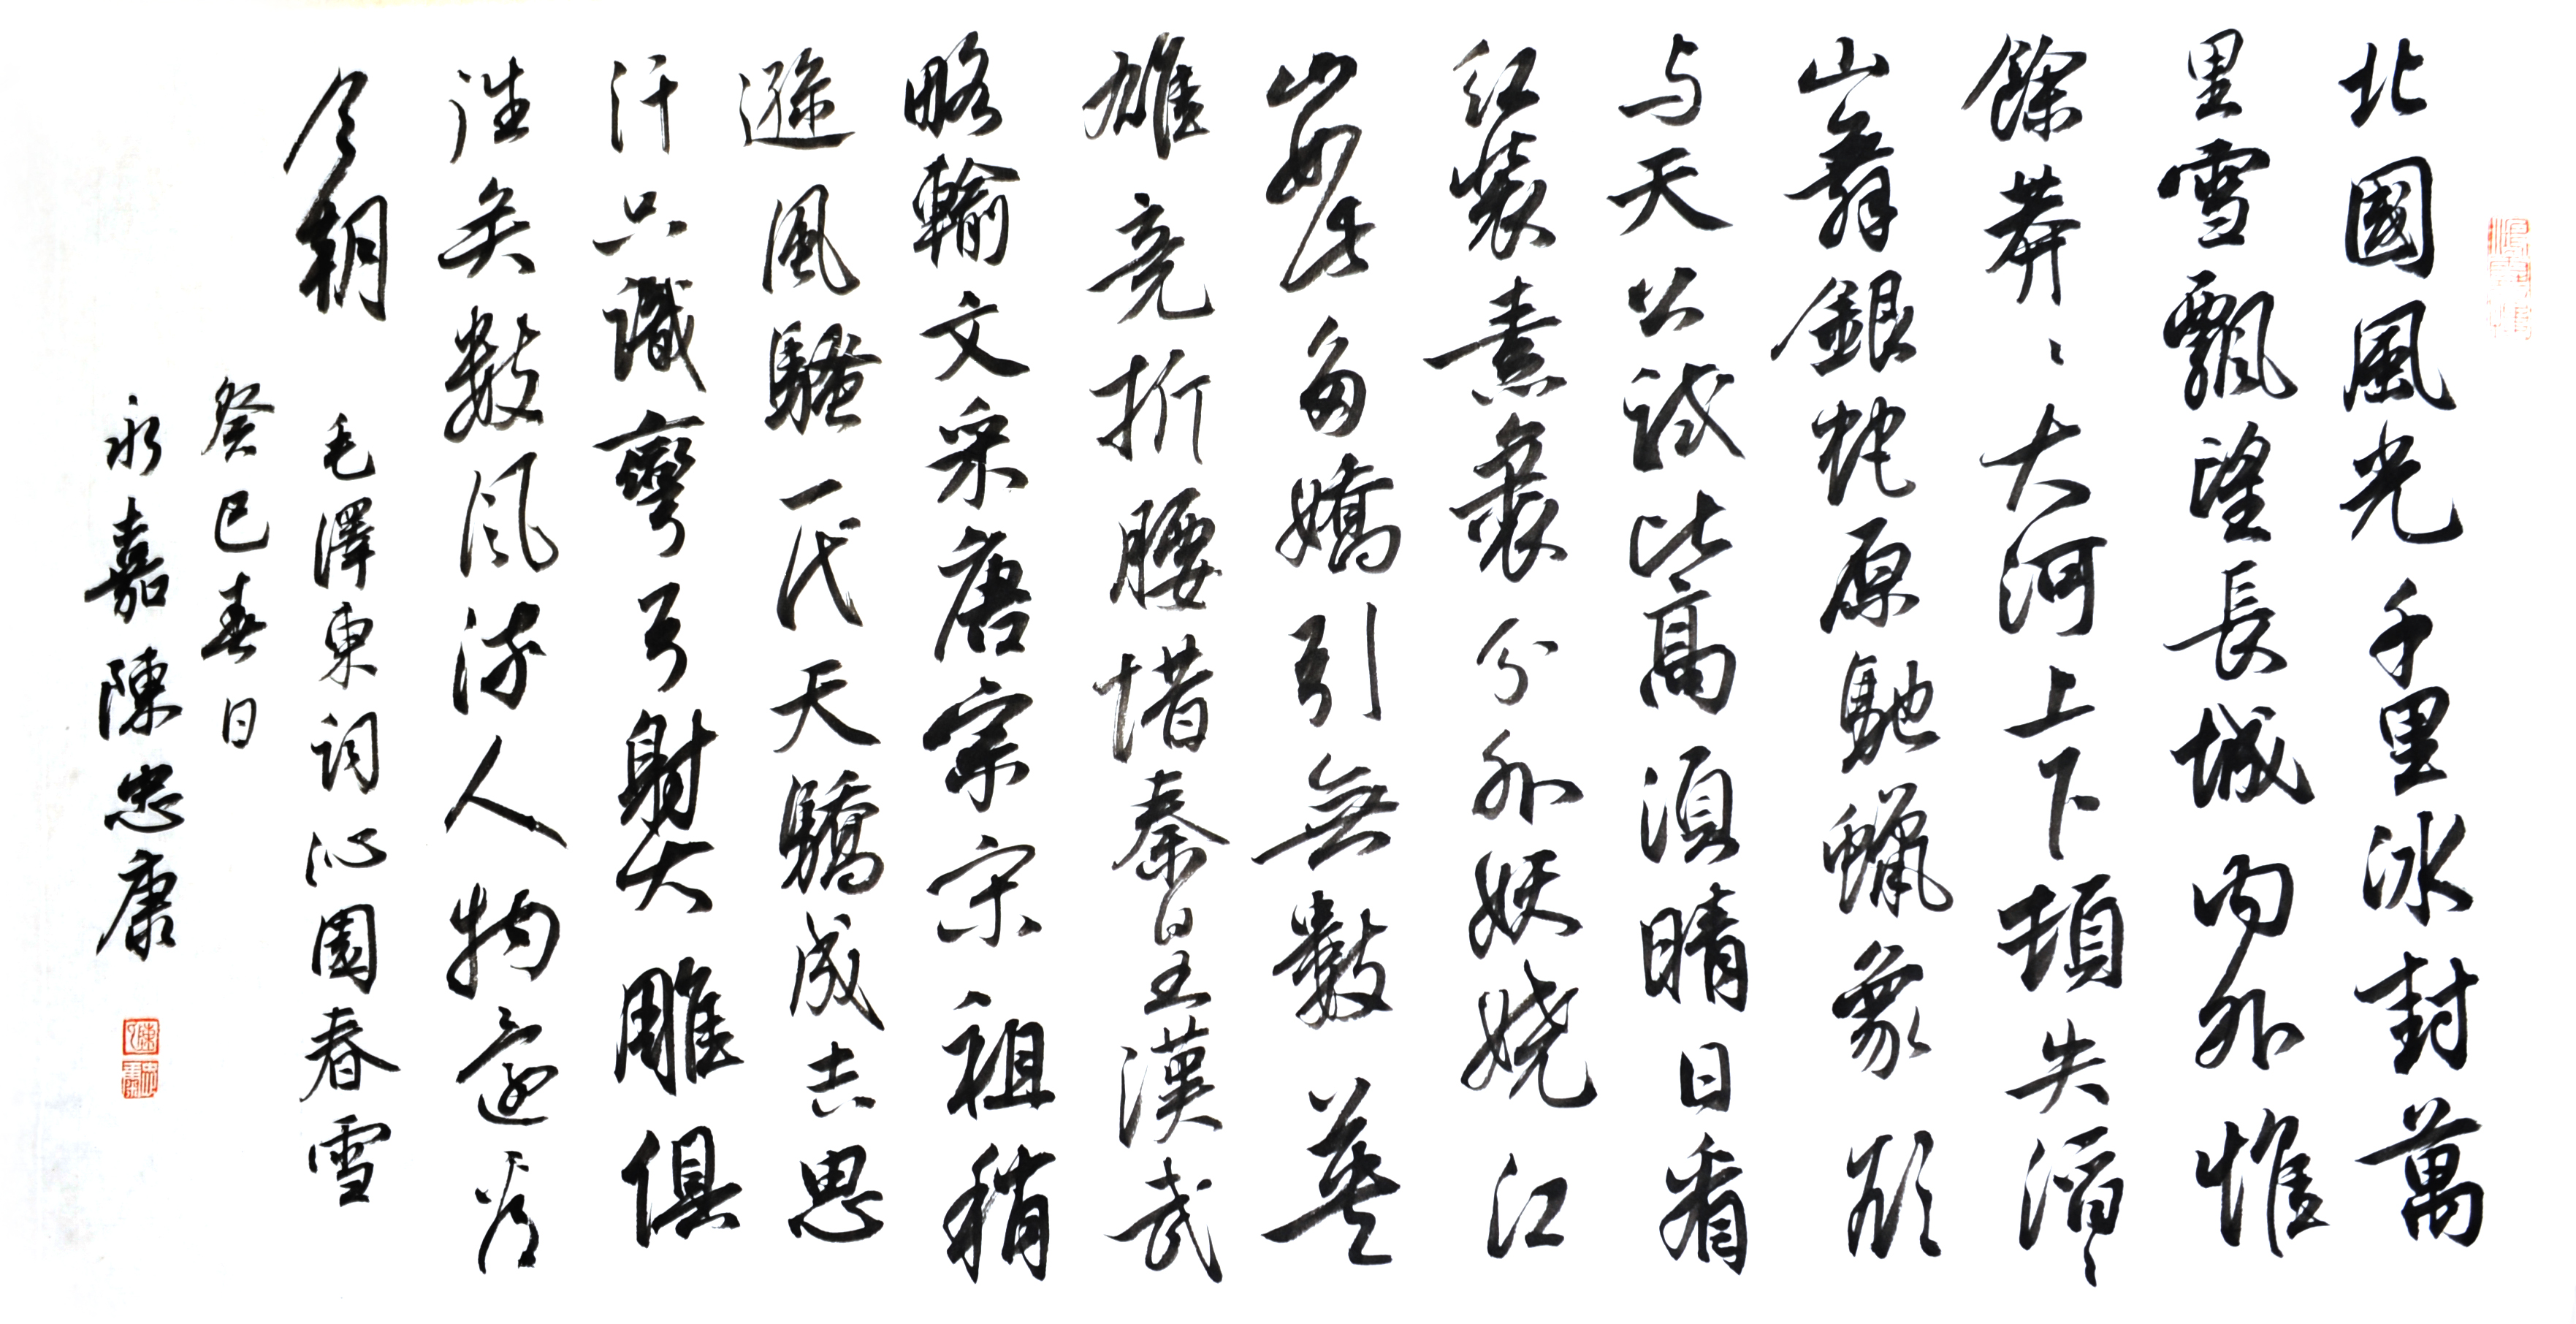 北國風光千里冰封萬
里雪飄望長城內外惟
餘莽〻大河上下頓失滔〻
山舞銀蛇原馳蠟象欲
与天公試比高須晴日看
紅裝素裹分外妖嬈江
山如此多嬌引無數英
雄竞折腰惜秦皇漢武
略輸文采唐宗宋祖稍
遜風騷一代天驕成吉思
汗只識彎弓射大雕俱
往矣數风流人物還看
今朝 毛澤東詞沁園春雪
癸巳春日
永嘉陳忠康